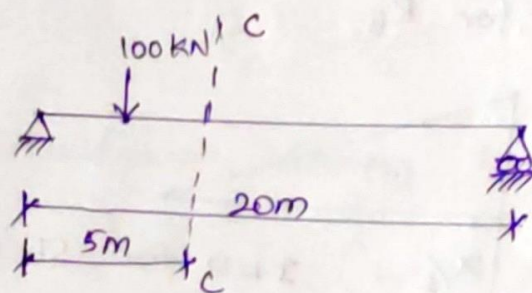 100KN C
20m
5m
C